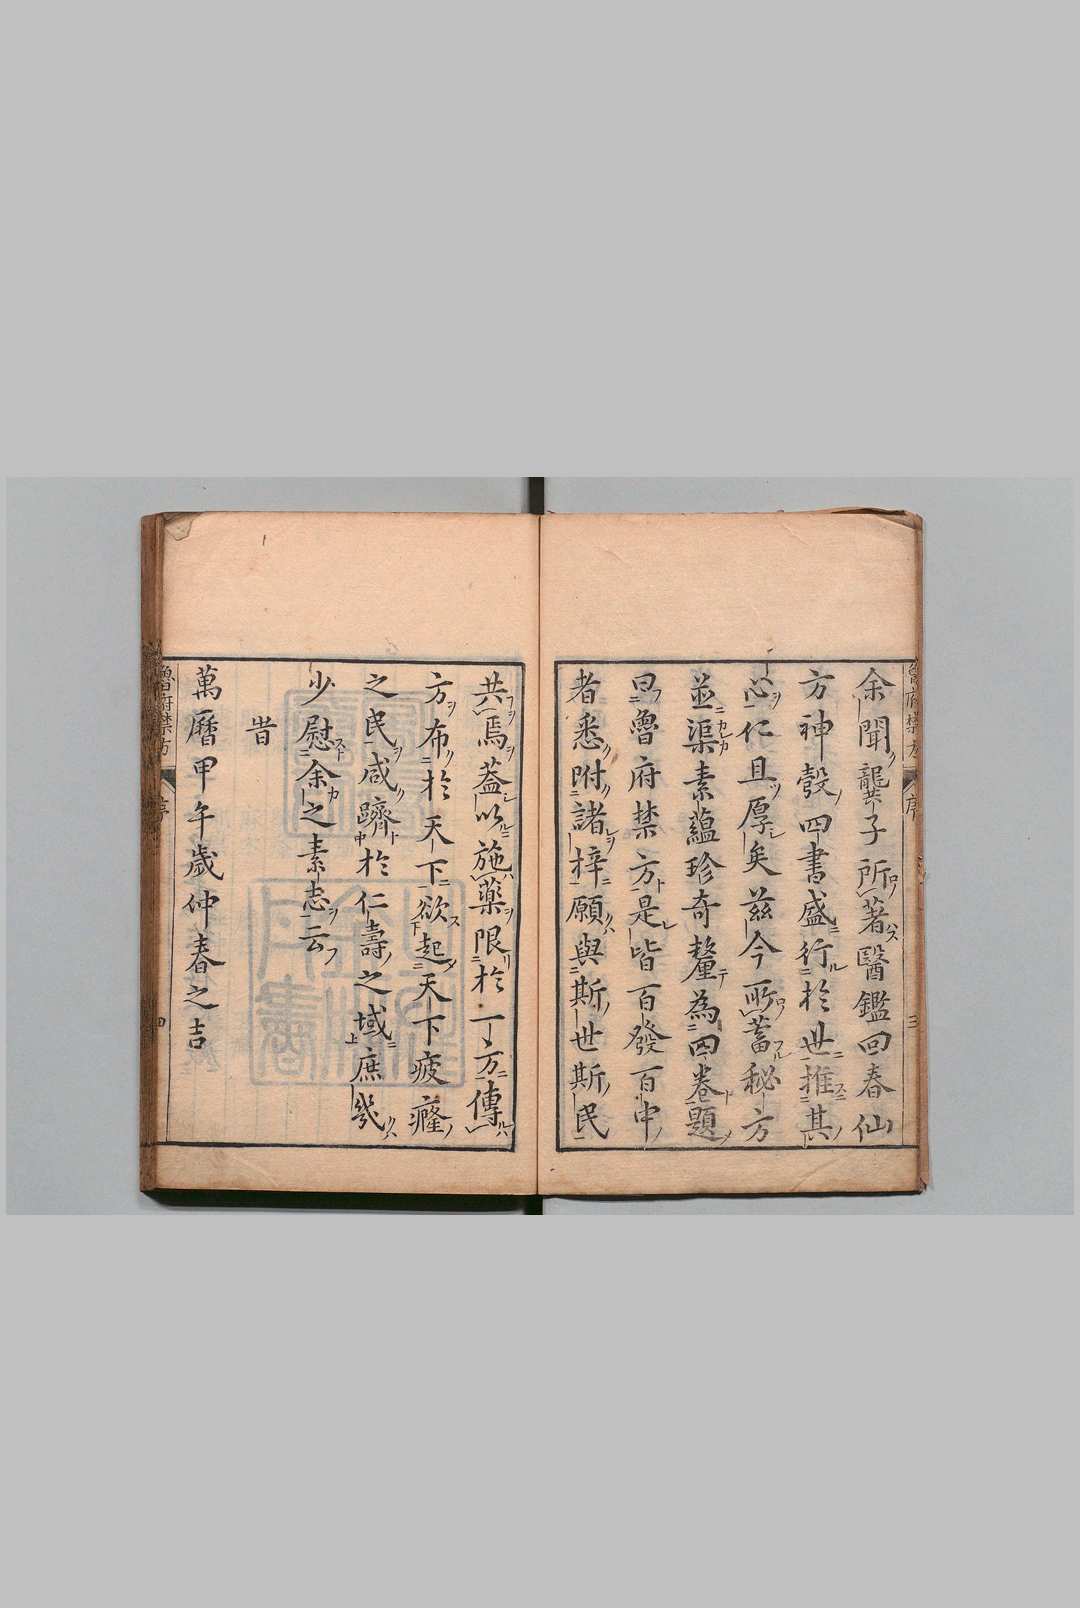 余聞龔子所著醫鑑回春仙
方神彀四書盛行於世推其
心仁且厚矣茲今所蓄秘方
並渠素蘊珍奇釐為四卷題
曰魯府禁方是皆百發百中
者悉附諸梓願與斯世斯民
共焉蓋以施藥限於一方傳
方布於天下欲起天下疲癃
之民咸躋於仁壽之域庶幾
少慰余之素志云
旹
萬曆甲午歲仲春之吉
魯府禁方
序
四